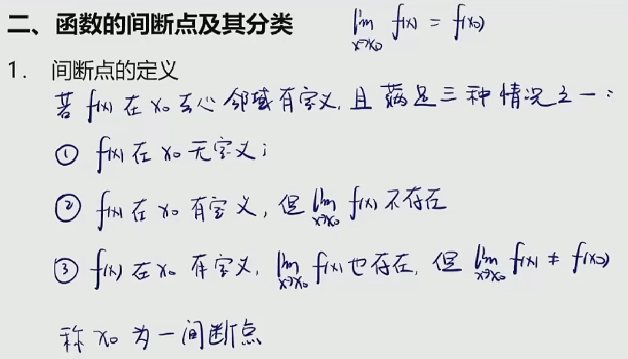 二、函数的间断点及其分类 lim x→x₀ f(x) = f(x₀)
1. 间断点的定义
若 f(x) 在 x₀ 去心邻域有定义, 且满足三种情况之一:
① f(x) 在 x₀ 无定义;
② f(x) 在 x₀ 有定义, 但 lim x→x₀ f(x) 不存在
③ f(x) 在 x₀ 有定义, lim x→x₀ f(x) 也存在, 但 lim x→x₀ f(x) ≠ f(x₀)
称 x₀ 为一间断点